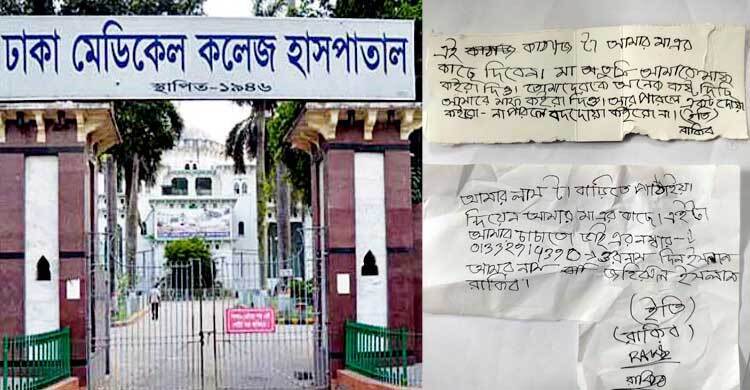 ঢাকা মেডিকেল কলেজ হাসপাতাল
স্থাপিত-১৯৪৬
এই কাগজ টা আমার মা এর
কাছে দিবেন। মা তুমি আমাকে মাফ
কইরা দিও। তোমাদেরকে অনেক কষ্ট দিছি
আমারে মাফ কইরা দিও। আর পারলে একটু দোয়া
কইরো- না পারলে বদদোয়া কইরো না। (ইতি)
রাকিব
আমার লাশ টা বাড়িতে পাঠাইয়া
দিয়েন আমার মা এর কাছে। এইটা
আমার চাচাতো ভাই এর নম্বার-
ওর নাম - দিন ইসলাম
আমার নাম জহিরুল ইসলাম
রাকিব।
(ইতি)
(রাকিব)
রাকিব